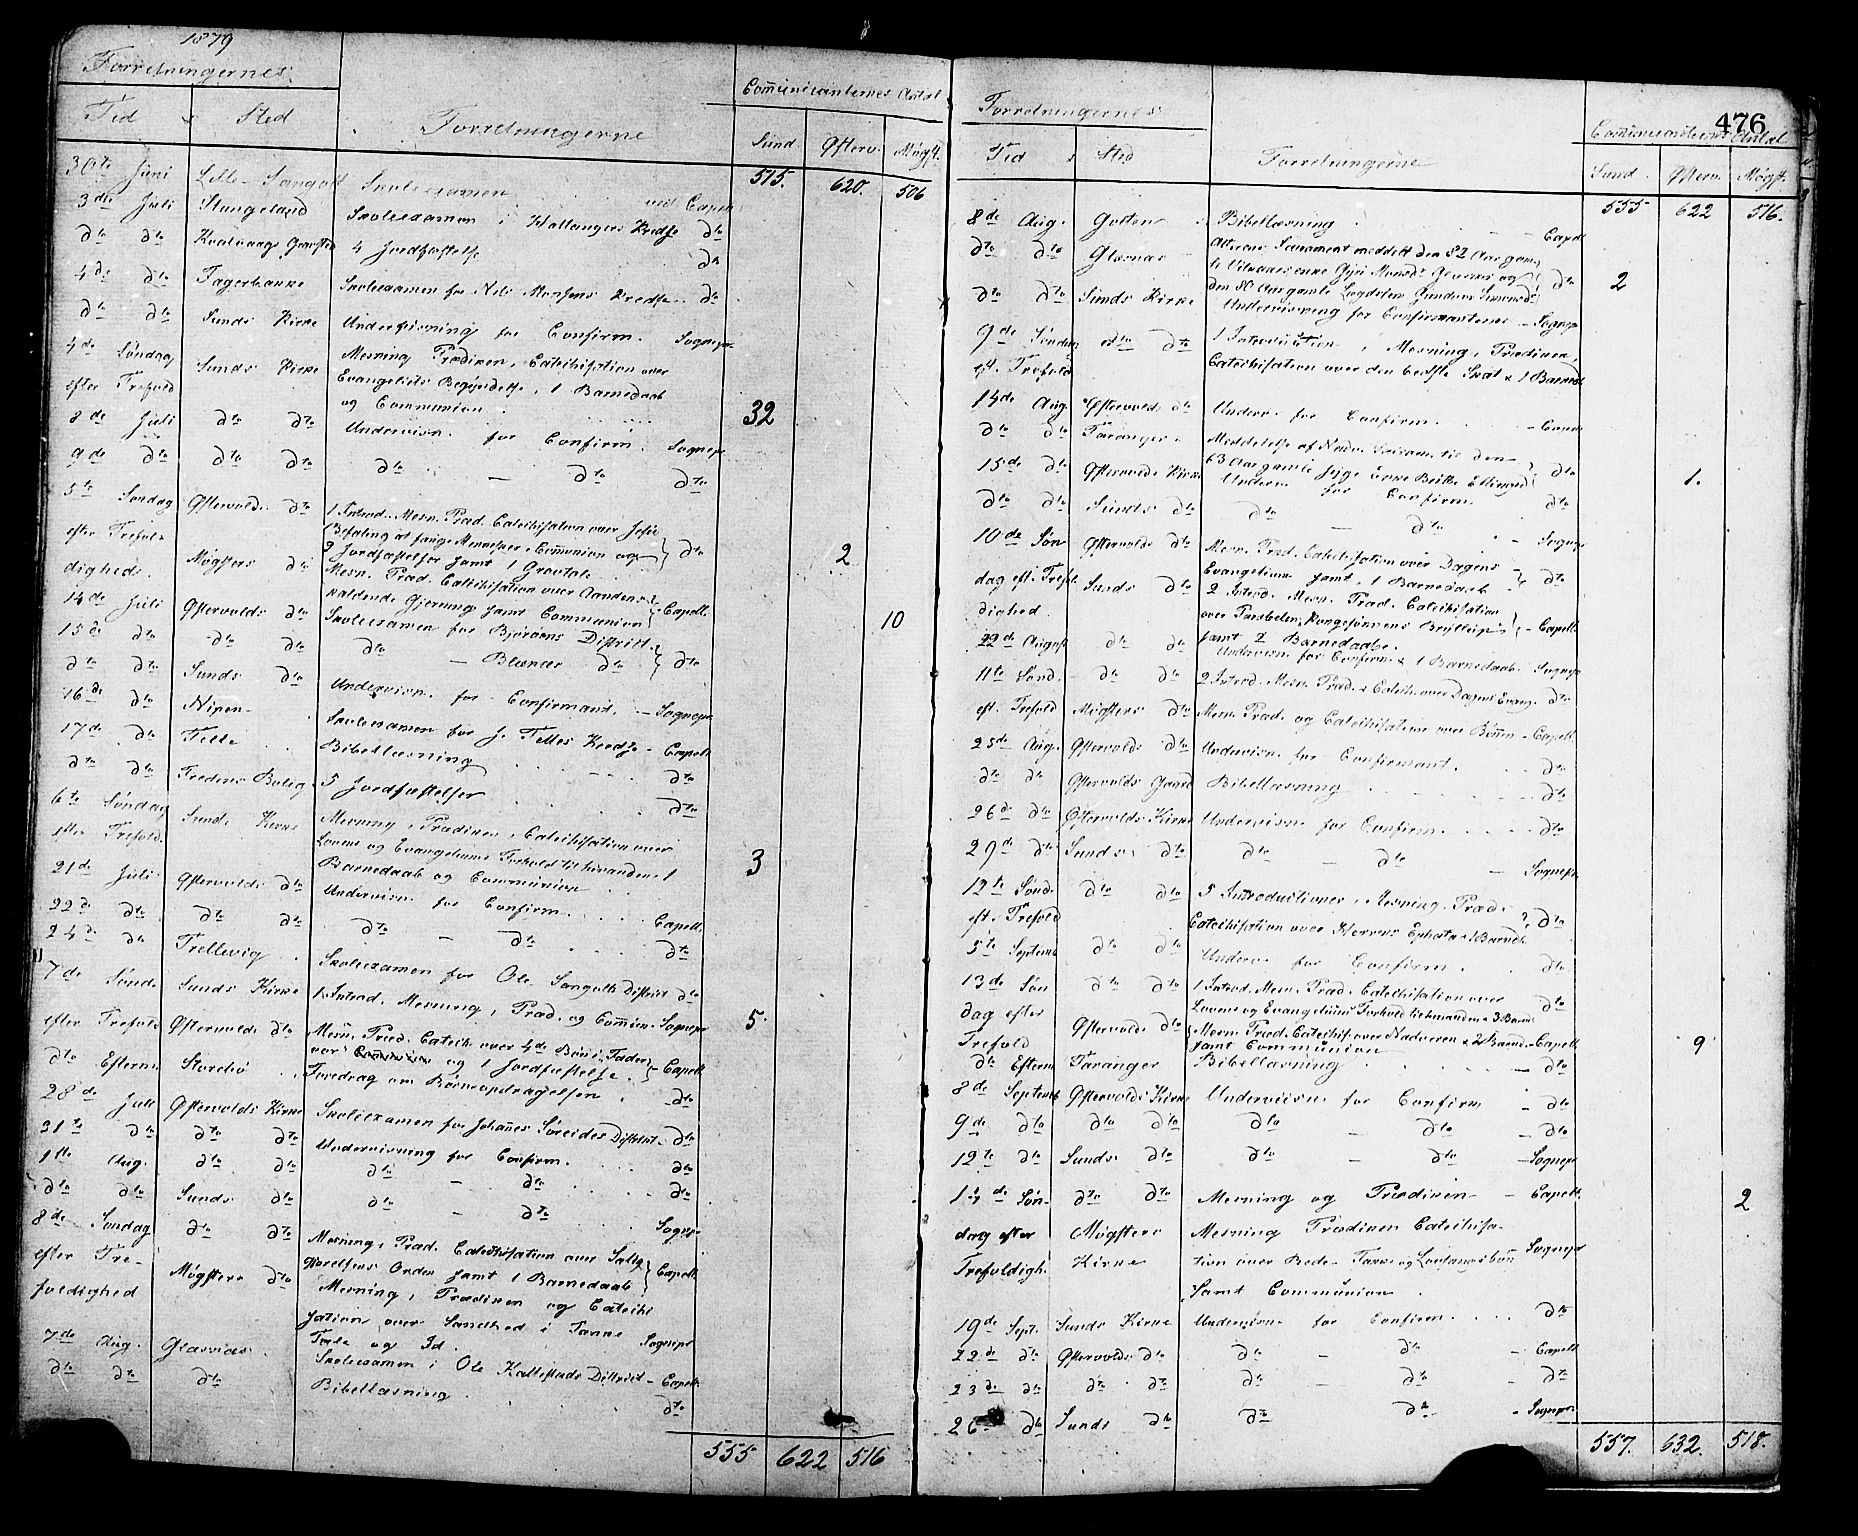 1879
Forretningernes
Communicanternes Antal
Tid & Sted
Forretningerne
Sund. Østerv. Møgst.
515. 620. 506
30te Juni Lille-Sangolt Skoleexamen ved Capell.
3die Juli Stangeland Skoleexamen i Hallangers Kreds dto
dto dto Gravsted 4 Jordfæstelse dto
4de dto Fagerbakke Skoleexamen for Nils Monsens Kreds dto
dto dto Sunds Kirke Underviisning for Confirm. Sognepr.
4de Søndag Sunds Kirke Mesning, Prædiken, Catechisation over
efter Trefold. Evangeliets Begyndelse, 1 Barnedaab
og Communion 32
8de Juli dto dto Undervisn. for Confirm. Sognepr.
9de dto dto dto dto — dto dto
5te Søndag Østervolds dto 1 Introd. Mesn. Præd. Catechisation over Jesu
efter Trefol- Befaling at fange Mennesker, Communion og dto
2 Jordfæstelser samt 1 Gravtale 2
digheds. Møgsters dto Mesn. Præd. Catechisation over Aandens
kaldende Gjerning samt Communion Capell. 10
14de Juli Østervolds dto Skoleexamen for Bjøroens District
15de dto dto dto dto — Blænes dto dto
dto dto Sunds dto Undervisn. for Confirmant. Sognepr.
16de dto Nipen Skoleexamen for J. Telles Kreds Capell.
17de dto Telle Bibellæsning dto
dto dto Fredens Bolig 5 Jordfæstelser dto
6te Søndag Sunds Kirke Mesning, Prædiken, Catechisation over
efter Trefold. Lovens og Evangeliums Forhold til hinanden, 1
Barnedaab og Communion 3
21de Juli Østervolds dto Undervisn. for Confirm. Capell.
22de dto dto dto dto — dto dto
24de dto Trellevig Skoleexamen for Ole Sangolts District dto
7de Sønd. Sunds Kirke 1 Introd. Mesning, Præd. og Commun. Sognepr. 5
efter Trefold Østervolds dto Mesn. Præd. Catech. over 4de Bøn i Fader-
vor og 1 Jordfæstelse. Capell.
dto Efterm. Storebø Foredrag om Børneopdragelsen dto
28de Juli Østervolds Kirke Skoleexamen for Johannes Søreides District dto
31te dto dto dto Undervisning for Confirm. dto
1ste Aug. dto dto dto — dto dto
dto dto Sunds dto dto — dto Sognepr.
8de Søndag dto dto Mesning, Præd. Catechisation over Salig-
efter Tre- Orden samt 1 Barnedaab Capell.
foldighed Møgsters dto Mesning, Prædiken og Catechi-
sation over Sandhed i Tanke
Tale og Id. Sognepr.
7de Aug. Glæsnæs Skoleexamen i Ole Kallestads District Capell.
dto dto dto Bibellæsning dto
555 622 516
476
Forretningernes
Communicanternes Antal
Tid & Sted
Forretningerne
Sund. Østerv. Møgst.
555 622 516.
8de Aug. Golten Bibellæsning Capell.
dto dto Glæsnæs Alterens Sacrament meddelt den 82 Aar gam-
le Enke Gyri Monsdr. Glæsnæs og dto 2
den 80 Aar gamle Lægdslem Gunder Simonsd.
dto dto Sunds Kirke Underviisning for Confirmanterne Sognepr.
9de Søndag dto dto 1 Introduction, Mesning, Prædiken,
eft. Trefold Catechisation over den bedste Skat & 1 Barned.
14de Aug. Østervolds dto Underv. for Confirm. Capell.
dto dto Taranger Meddelelse af til den
63 Aar gamle syge Enke Brithe Ellingsd. dto 1.
15de dto Østervolds Kirke Underv. for Confirm. dto
dto dto Sunds dto dto — dto Sognepr.
10de Søn- Østervolds dto Mesn. Præd. Catechisation over Dagens
Evangelium samt 1 Barnedaab dto
dag eft. Trefol- Sunds dto 2 Introd. Mesn. Præd. Catechisation
dighed over Parabelen, Kongesønnens Bryllup, Capell.
samt 2 Barnedaabe.
22de August dto dto Undervisn. for Confirm. & 1 Barnedaab. Sognepr.
11te Sønd. dto dto 2 Introd. Mesn. Præd. & Catech. over Dagens Evang. dto
eft. Trefold Møgsters dto Mesn. Præd. og Catechisation over Bønnen Capell.
25de Aug. Østervolds dto Undervisn. for Confirmant. dto
dto dto Østervolds Gaard Bibellæsning dto
26de dto Østervolds Kirke Undervisn. for Confirm. dto
29de dto Sunds dto dto — dto Sognepr.
12te Sønd. dto dto 5 Introductioner, Mesning, Præd.
eft. Trefold Catechisation over Herrens Ephata & 1 Barned. dto
5te Septemb. dto dto Underv. for Confirm. dto
13de Søn- dto dto 1 Introd. Mesn. Præd. Catechisation over
dag efter Lovens og Evangeliums Forhold til hinanden & 3 Barned. dto
Trefold Østervolds dto Mesn. Præd. Catechis. over Nadveren & 2 Barned. Capell.
samt Communion 9
dto Efterm Taranger Bibellæsning dto
8de Septemb. Østervolds Kirke Underviisn. for Confirm dto
9de dto dto dto dto — dto dto
12te dto Sunds dto dto — dto Sognepr.
14de Søn- dto dto Mesning og Prædiken Capell.
dag efter Møgsters Mesning Prædiken Catechisa- 2
Trefoldigh. Kirke tion over Bede- Takke- og Lovsangsbøn Sognepr.
Samt Communion.
19de Sept. Sunds Kirke Undervisn. for Confirm. dto
22de dto Østervolds dto dto — dto Capell.
23de dto dto dto dto — dto dto
26de dto Sunds dto dto dto Sognepr.
557. 632. 518.